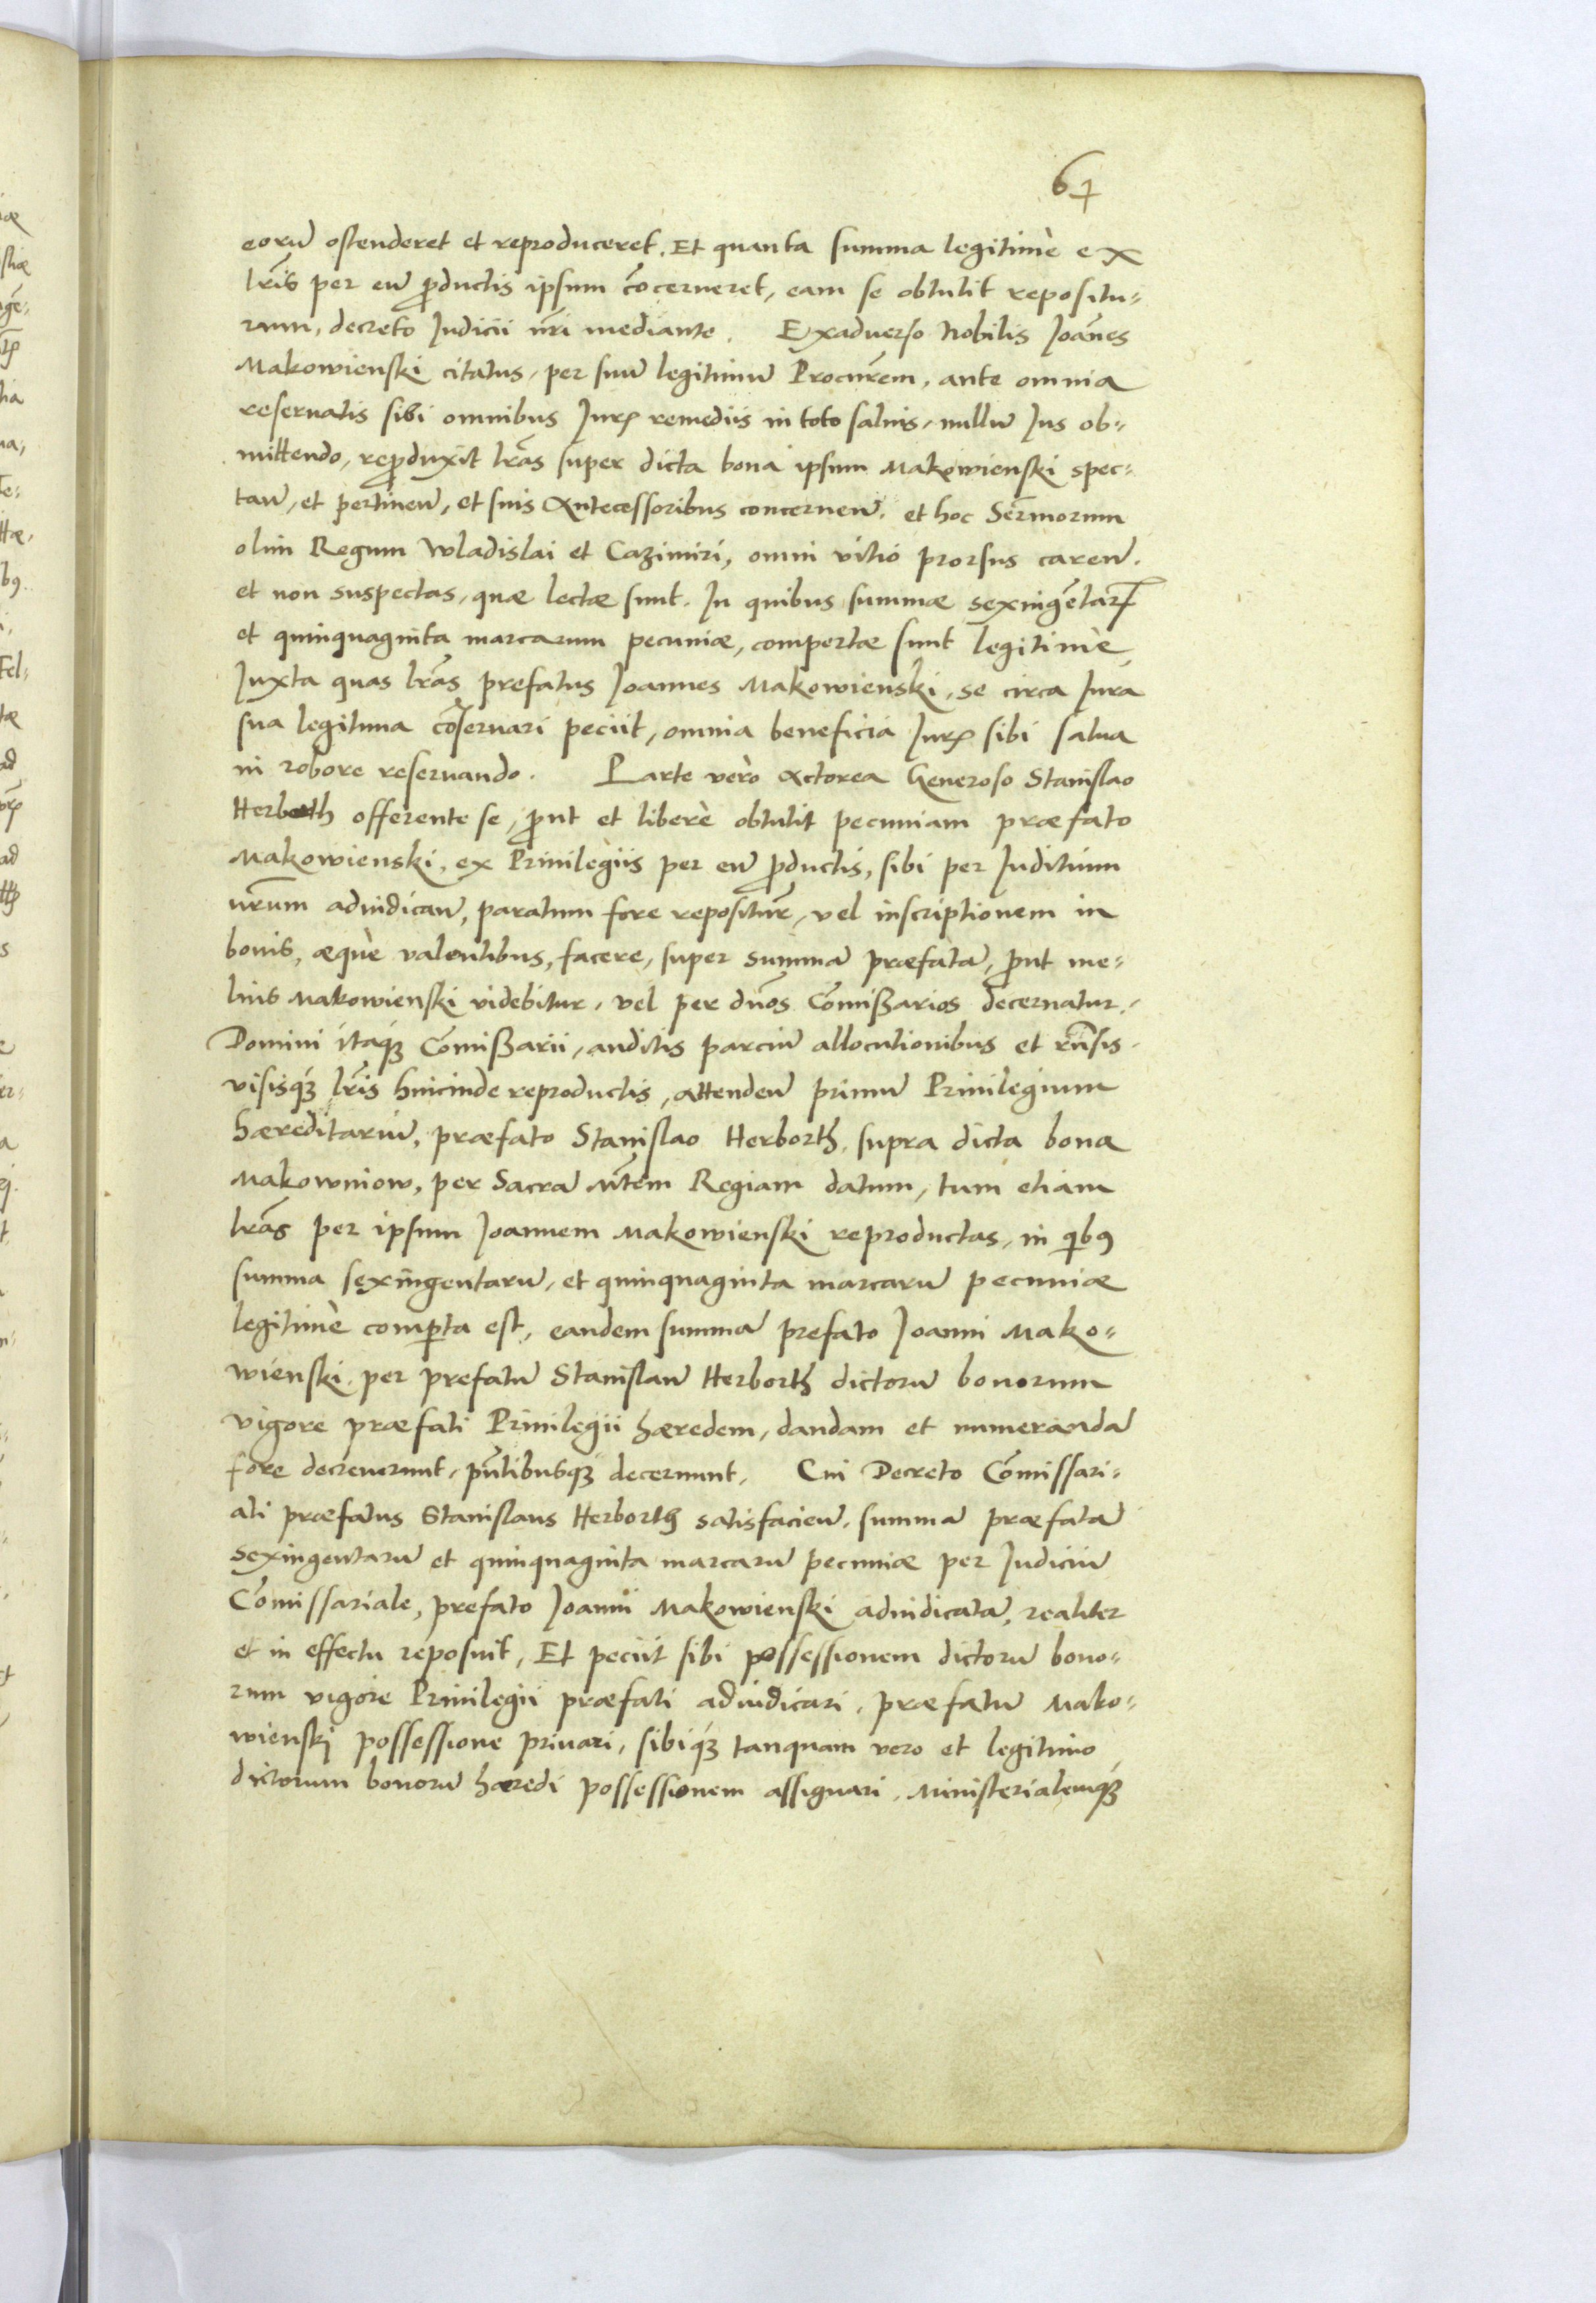 64
eorũ ostenderet et reproduceret. Et quanta summa legitimè ex
lr̃is per eũ ꝓductis ipsum cõcerneret, eam se obtulit repositu⸗
rum, decreto Judicii nr̃i mediante. Exaduerso Nobilis Joãnes
Makowienski citatus, per suũ legitimũ Procur̃em, ante omnia
reseruatis sibi omnibus Juꝝ remediis in toto saluis, nullũ Jus ob⸗
mittendo, reꝓduxit lr̃as super dicta bona ipsum Makowienski spec⸗
tañ, et pertineñ, et suis Antecessoribus concerneñ. et hoc Ser̃morum
olim Regum Wladislai et Cazimiri, omni vitio prorsus careñ.
et non suspectas, quæ lectæ sunt. In quibus summæ sexingẽtarꝝ
et quinquaginta marcarum pecuniæ, compertæ sunt legitimè,
Juxta quas lr̃as prefatus Joannes Makowienski, se circa Jura
sua legitima cõseruari peciit, omnia beneficia Juꝝ sibi salua
in robore reseruando. Parte verò Actorea Generoso Stanislao
Herborth offerente se, ꝓut et liberè obtulit pecuniam præfato
Makowienski, ex Priuilegiis per eũ ꝓductis, sibi per Juditium
nr̃um adiudicañ, paratum fore repositur̃, vel inscriptionem in
bonis, æquè valentibus, facere, super summã præfatã, ꝓut me⸗
lius Makowienski videbitur, vel per dños Cõmißarios decernatur.
Domini itaqꝫ Cõmißarii, auditis parciũ allocutionibus et rñsis.
visisqꝫ lr̃is hincinde reproductis, attendeñ primũ Priuilegium
hæreditariũ, præfato Stanislao Herborth, supra dicta bona
Makowniow, per Sacrã Mt̃em Regiam datum, tum etiam
lr̃as per ipsum Joannem Makowienski reproductas, in qibꝰ
summa sexingentarũ, et quinquaginta marcarũ pecuniæ
legitimè comꝑta est, eandem summã prefato Joanni Mako⸗
wienski per prefatũ Stanislaũ Herborth dictorũ bonorum
vigore præfati Priuilegii hæredem, dandam et numerandã
fore decreuerunt, pñtibusqꝫ decernunt. Cui Decreto Cõmissari⸗
ali præfatus Stanislaus Herborth satisfacieñ, summã præfatã
sexingentarũ et quinquaginta marcarũ pecuniæ per Judiciũ
Cõmissariale, prefato Joanni Makowienski adiudicatã, realiter
et in effectu reposuit, Et peciit sibi possessionem dictorũ bono⸗
rum vigore Priuilegii præfati adiudicari, præfatũ Mako⸗
wienskj possessione priuari, sibiqꝫ tanquam vero et legitimo
dictorum bonorũ hæredi possessionem assignari, Ministerialemqꝫ